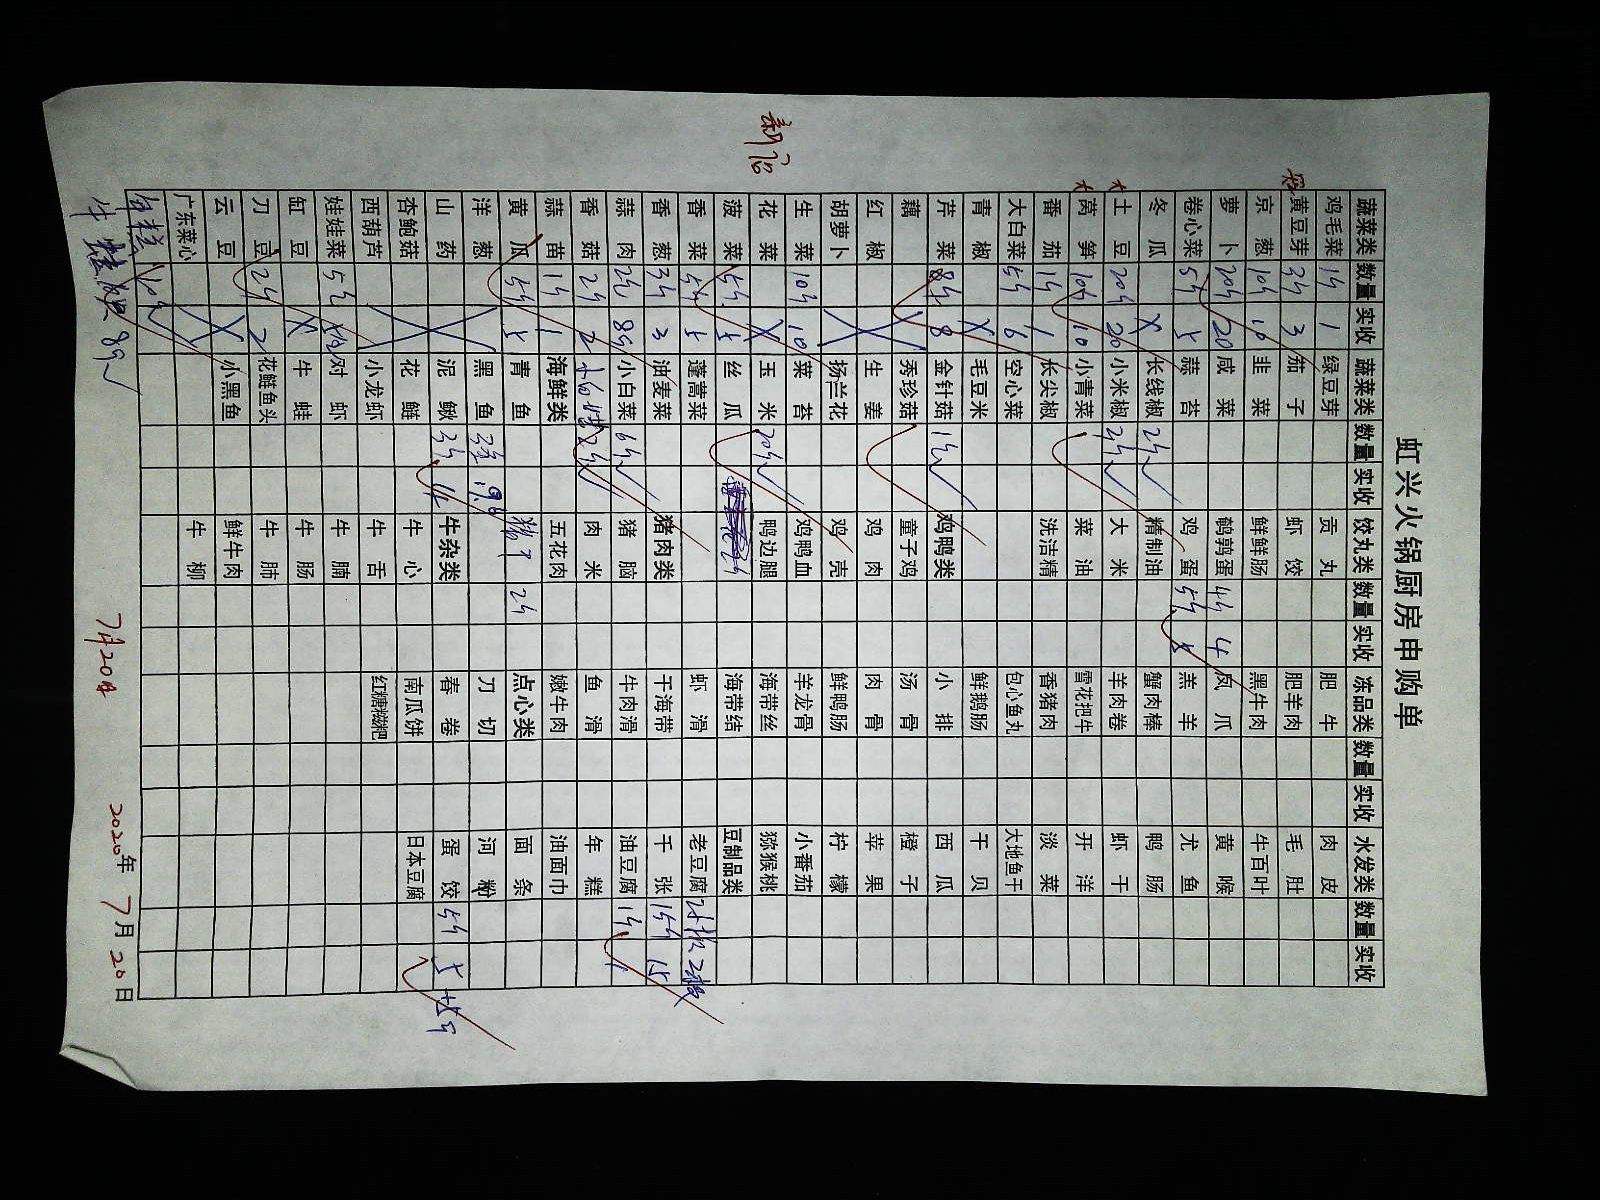 虹兴火锅厨房申购单
新店
蔬菜类 数量 实收 蔬菜类 数量 实收 饺丸类 数量 实收 冻品类 数量 实收 水发类 数量 实收
鸡毛菜 1斤 1 绿豆芽 贡丸 肥牛 肉皮
黄豆芽 3斤 3 茄子 虾饺 肥羊肉 毛肚
京葱 10斤 10 韭菜 鲜鲜肠 黑牛肉 牛百叶
萝卜 20斤 20 咸菜 鹌鹑蛋 4斤 4 凤爪 黄喉
卷心菜 5斤 5 蒜苔 鸡蛋 5斤 5 羔羊 尤鱼
冬瓜 X 长线椒 2斤 精制油 蟹肉棒 鸭肠
土豆 20斤 20 小米椒 2斤 大米 羊肉卷 虾干
莴笋 10斤 10 小青菜 菜油 雪花把牛 开洋
番茄 1斤 1 长尖椒 洗洁精 香猪肉 淡菜
大白菜 5斤 6 空心菜 包心鱼丸 大地鱼干
青椒 X 毛豆米 鲜鹅肠 干贝
芹菜 8斤 8 金针菇 1包 鸡鸭类 小排 西瓜
藕 秀珍菇 童子鸡 汤骨 橙子
红椒 生姜 鸡肉 肉骨 苹果
胡萝卜 扬兰花 鸡壳 鲜鸭肠 柠檬
生菜 10斤 10 菜苔 鸡鸭血 羊龙骨 小番茄
花菜 X 玉米 20斤 鸭边腿 海带丝 猕猴桃
菠菜 5斤 5 丝瓜 海带结 豆制品类
香菜 5斤 5 蓬蒿菜 虾滑 老豆腐 2板 2板
香葱 3斤 3 油麦菜 猪肉类 干海带 千张 15斤 15
蒜肉 8斤 小白菜 6斤 猪脑 牛肉滑 油豆腐 1斤 1
香菇 2斤 2 2斤 肉米 鱼滑 年糕
蒜苗 1斤 1 海鲜类 五花肉 嫩牛肉 油面巾
黄瓜 5斤 5 青鱼 2斤 点心类 面条
洋葱 黑鱼 9.6 刀切 河粉
山药 泥鳅 3斤 4 牛杂类 春卷 蛋饺 5斤 5
杏鲍菇 花鲢 牛心 南瓜饼 日本豆腐
西葫芦 小龙虾 牛舌 红糖糍粑
娃娃菜 5斤 对虾 牛腩
缸豆 X 牛蛙 牛肠
刀豆 2斤 2 花鲢鱼头 牛肺
云豆 小黑鱼 鲜牛肉
广东菜心 牛柳
年糕
牛蛙 8斤
7月20日
2020年7月20日